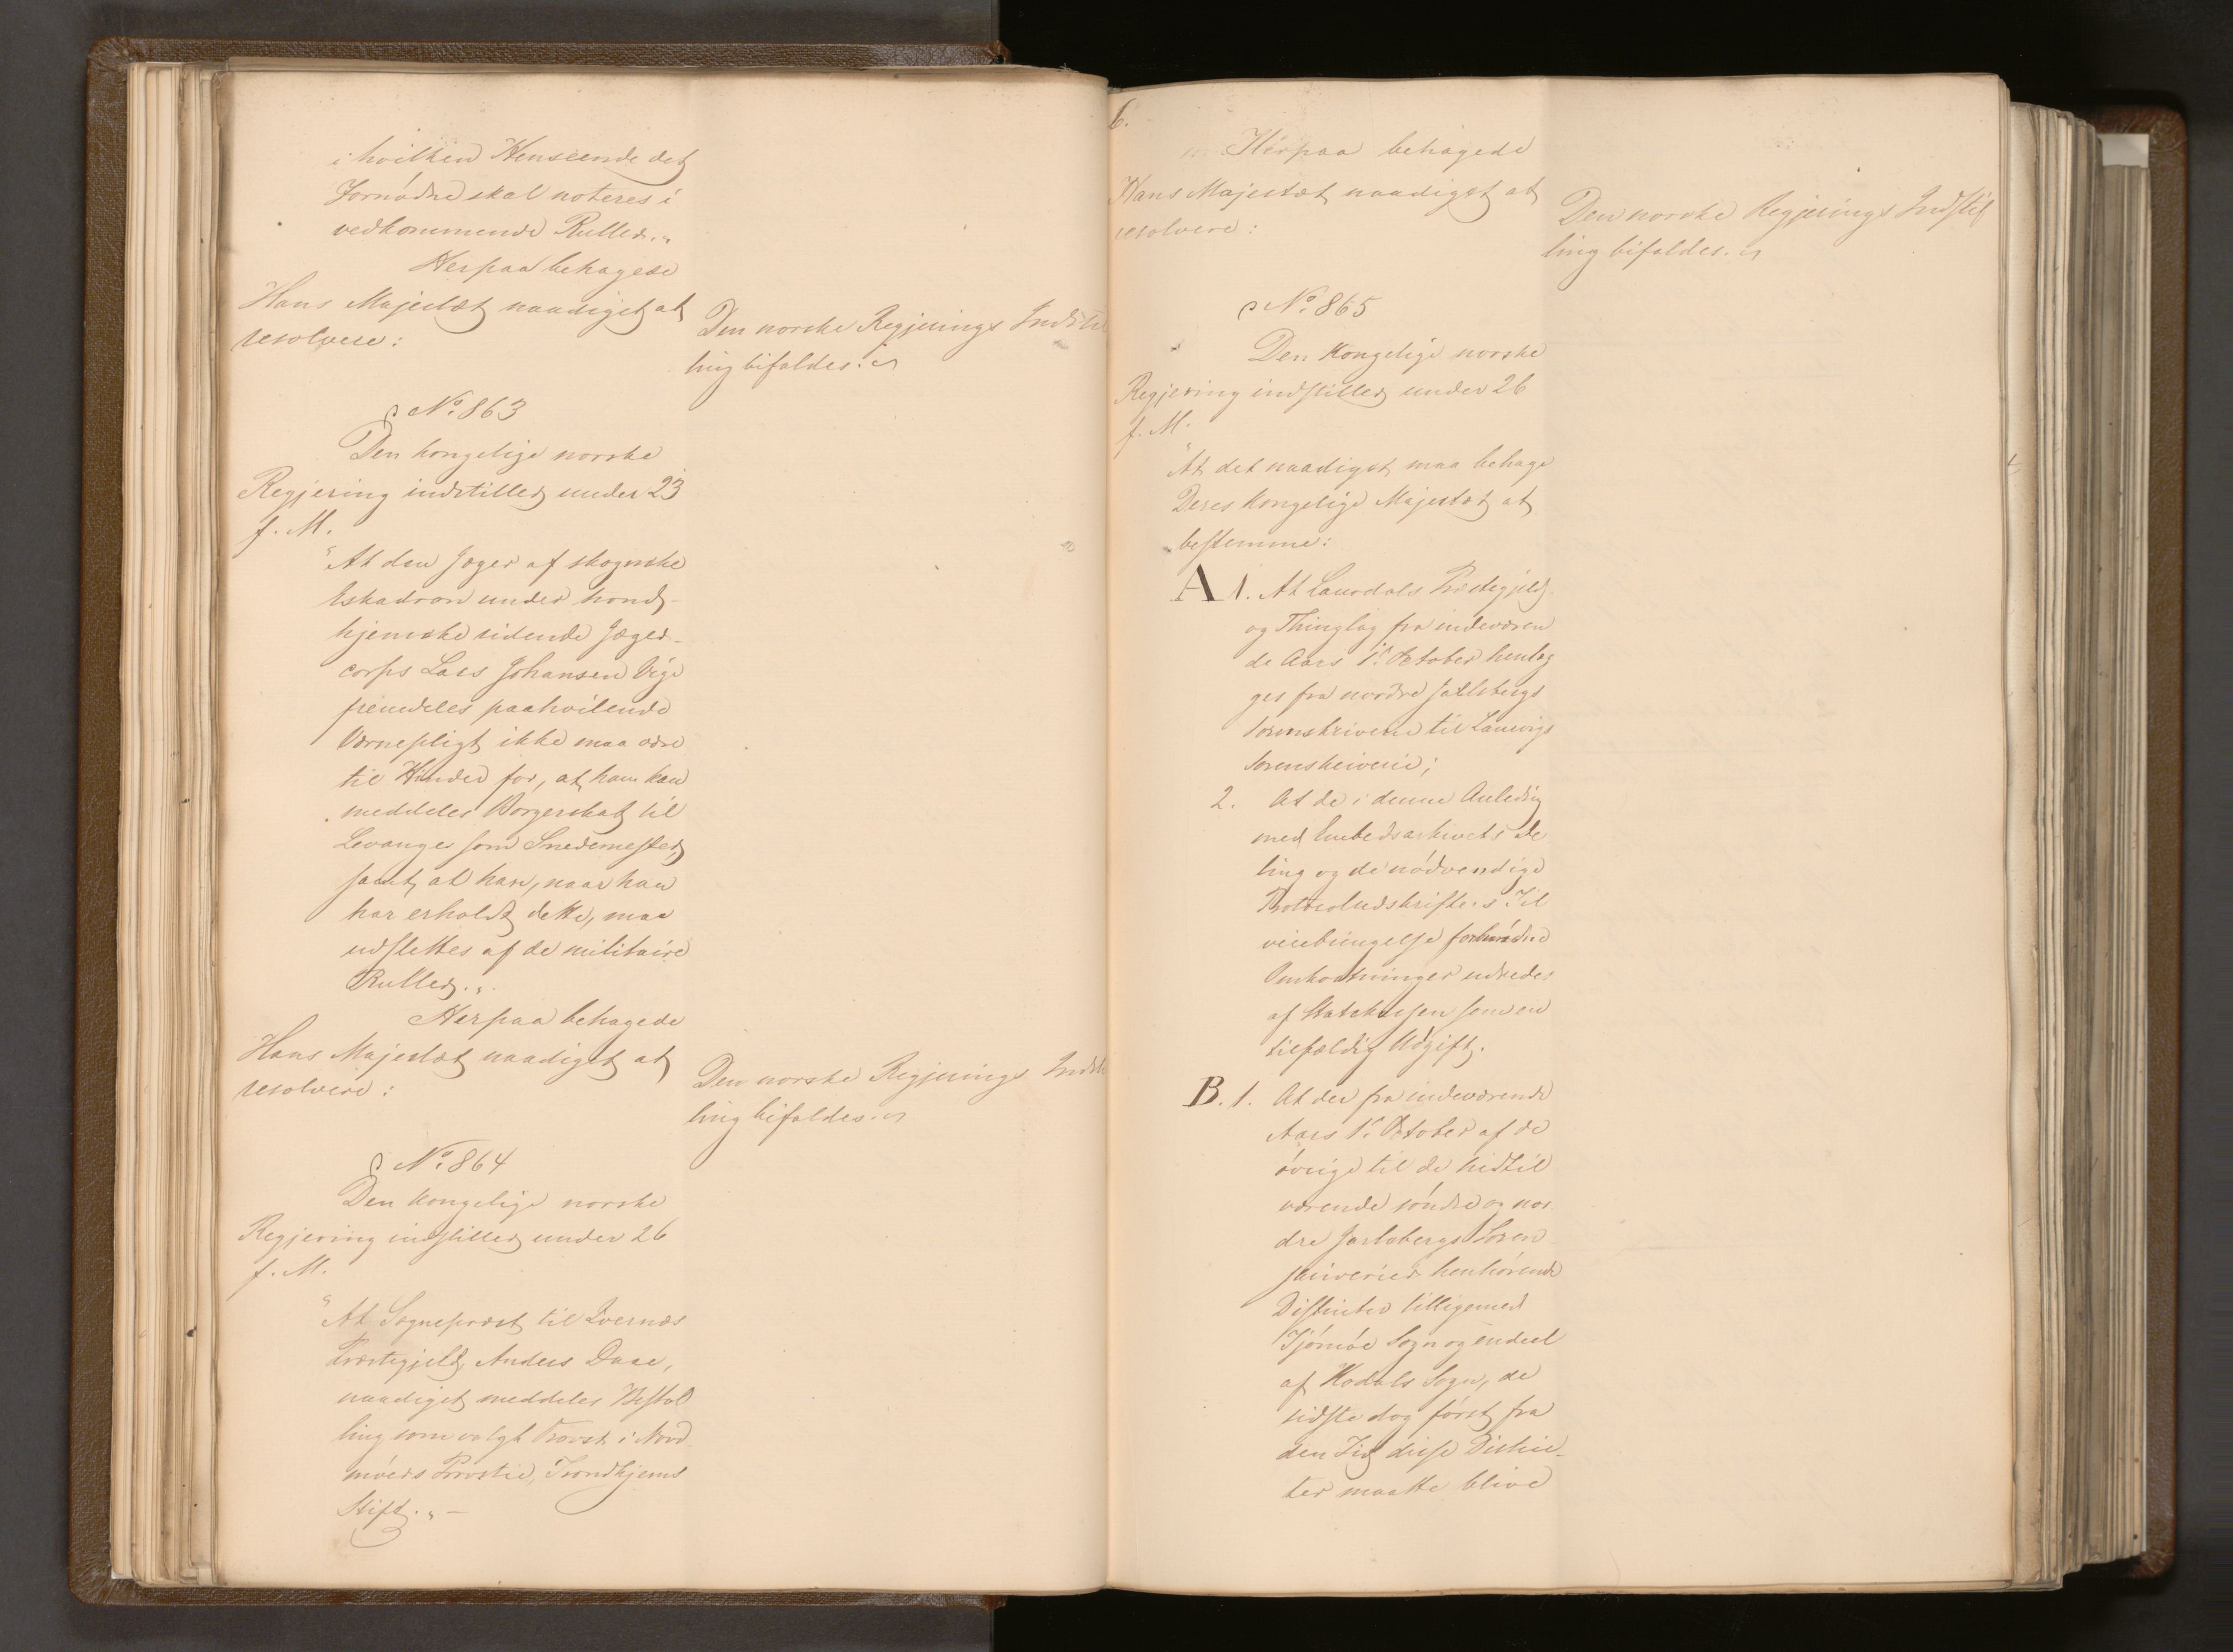 i hvilken Henseende det
Fornødne skal noteres i
vedkommende Ruller."
Herpaa behagede
Hans Majestæt naadigst at
resolvere:
Den norske Regjerings Indstil
ling bifaldes.
No. 863
Den kongelige norske
Regjering indstiller under 23
f. M.
"At den Jæger af skognske
Eskadron under trond-
hjemske ridende Jæger-
corps Lars Johansen Vige
fremdeles paahvilende
Værnepligt ikke maa være
til Hinder for, at ham kan
meddeles Borgerskab til
Levanger som Snedkermester,
samt, at han, naar han
har erholdt dette, maa
udslettes af de militaire
Ruller."
Herpaa behagede
Hans Majestæt naadigst at
resolvere:
Den norske Regjerings Indstil
ling bifaldes.
No. 864
Den kongelige norske
Regjering indstiller under 26
f. M.
"At Sognepræst til Qvernæs
Præstegjeld, Anders Daae,
naadigst meddeles Bestal
ling som valgt Provst i Nord
møers Provstie, Trondhjems
Stift." —
6.
Herpaa behagede
Hans Majestæt naadigst at
resolvere:
Den norske Regjerings Indstil
ling bifaldes.
No. 865
Den Kongelige norske
Regjering indstiller under 26
f. M.
"At det naadigst maa behage
Deres Kongelige Majestæt at
bestemme:
A 1. At Laurdals Præstegjeld
og Thinglag fra indeværen
de Aars 1. October henlæg
ges fra nordre Jarlsbergs
Sorenskriverie til Laurvigs
Sorenskriverie;
2. At de i denne Anledning
med Embedsarkivets De
ling og de nødvendige
Protocoludskrifters Til
veiebringelse forbundne
Omkostninger udredes
af Statskassen som en
tilfældig Udgift.
B. 1. At der fra indeværende
Aars 1. October af de
øvrige til de hidtil
værende søndre og nor
dre Jarlsbergs Soren-
skriverier henhørende
Districter tilligemed
Tjømøe Sogn og endeel
af Hodals Sogn, de
sidste dog først fra
den Tid disse Distric-
ter maatte blive